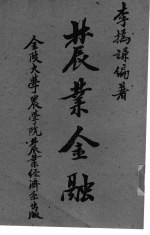 李撝謙編著
農業金融
金陵大學農學院農業經濟系出版